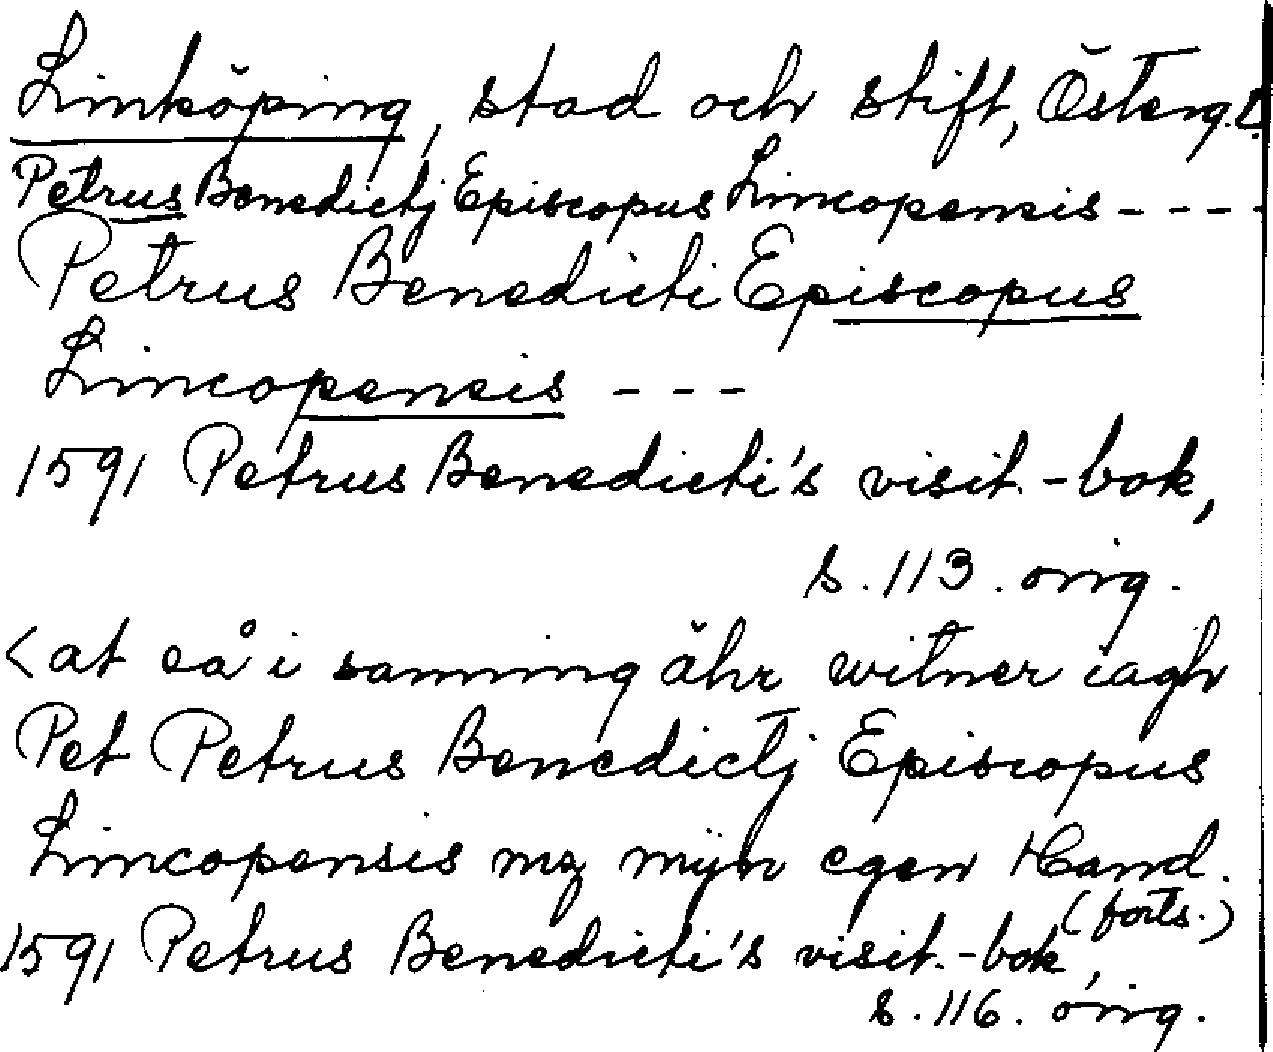 Linköping, stad och stift, Österg.L.
Petrus Benedictj Episcopus Lincopensis - - - -
Petrus Benedicti Episcopus
Lincopensis - - -
1591 Petrus Benedicti's visit.-bok,
s. 113. orig.
<at så i sanning ähr witner iagh
Pet Petrus Benedictj Episcopus
Lincopensis mz mÿn egen Hand.
(forts.)
1591 Petrus Benedicti's visit.-bok,
s. 116. orig.